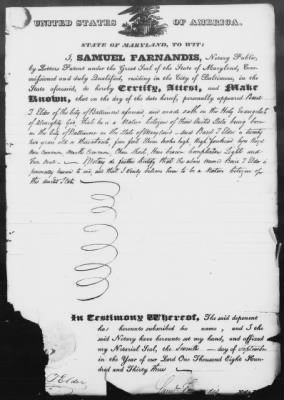 UNITED STATES OF AMERICA.
STATE OF MARYLAND, TO WIT:
I, SAMUEL FARNANDIS, Notary Public,
by Letters Patent under the Great Seal of the State of Maryland, Com-
missioned and duly Qualified, residing in the City of Baltimore, in the
State aforesaid, do hereby Certify, Attest, and Make
Known, that on the day of the date hereof, personally appeared
I Elder of the City of Baltimore aforesaid and made oath on the Holy Evangelist
of Almighty God that he is a Native Citizen of these United States being born
in the City of Baltimore in the State of Maryland and I Elder is twenty
two years
five feet three inches high, High forehead, Eyes
nose Common, Mouth Common, Chin
Light and
I Notary do further Certify that the above named I Elder is
personally known to me, and that I verily believe him to be a Native Citizen of
the United States
In Testimony Whereof, The said deponent
has hereunto subscribed his name, and I the
said Notary have hereunto set my hand, and affixed
my Notarial Seal, the day of September
in the Year of our Lord One Thousand Eight Hun-
dred and Thirty three
I Elder